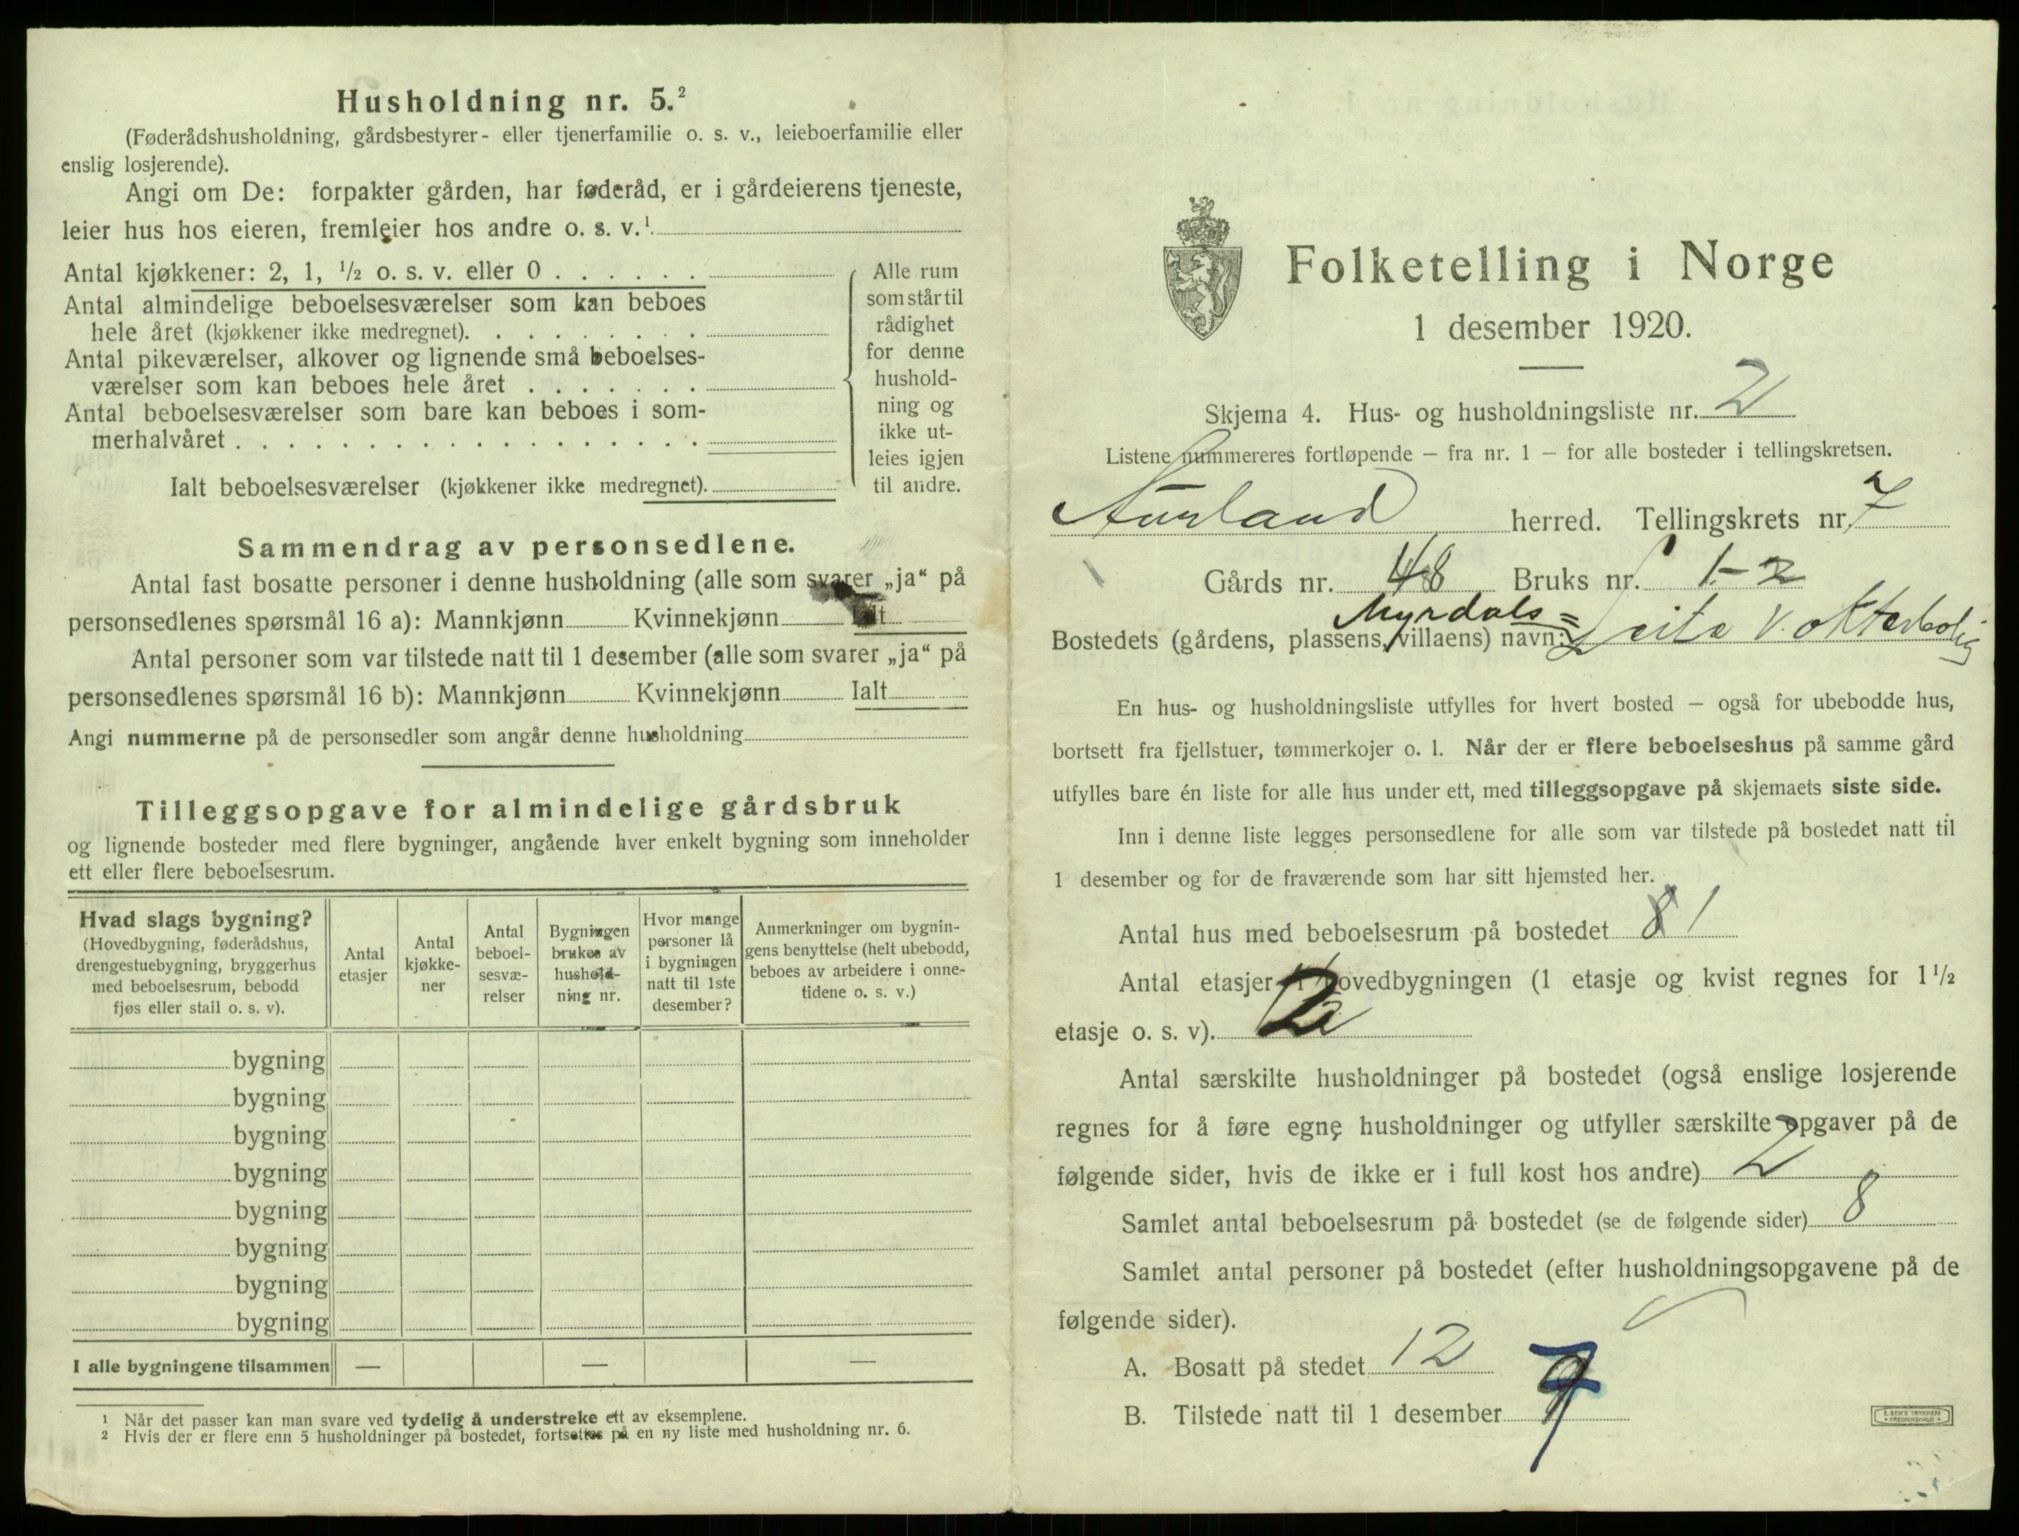 Husholdning nr. 5.²
(Føderådshusholdning, gårdsbestyrer- eller tjenerfamilie o. s. v., leieboerfamilie eller
enslig losjerende).
Angi om De: forpakter gården, har føderåd, er i gårdeierens tjeneste,
leier hus hos eieren, fremleier hos andre o. s. v.¹
Antal kjøkkener: 2, 1, ½ o. s. v. eller 0 . . . . . .
Antal almindelige beboelsesværelser som kan beboes
hele året (kjøkkener ikke medregnet). . . . . . . . .
Antal pikeværelser, alkover og lignende små beboelses-
værelser som kan beboes hele året . . . . . . .
Antal beboelsesværelser som bare kan beboes i som-
merhalvåret . . . . . . . . . . . . . . . . . .
Ialt beboelsesværelser (kjøkkener ikke medregnet).
Alle rum
som står til
rådighet
for denne
hushold-
ning og
ikke ut-
leies igjen
til andre.
Sammendrag av personsedlene.
Antal fast bosatte personer i denne husholdning (alle som svarer „ja“ på
personsedlenes spørsmål 16 a): Mannkjønn Kvinnekjønn Ialt
Antal personer som var tilstede natt til 1 desember (alle som svarer „ja“ på
personsedlenes spørsmål 16 b): Mannkjønn Kvinnekjønn Ialt
Angi nummerne på de personsedler som angår denne husholdning
Tilleggsopgave for almindelige gårdsbruk
og lignende bosteder med flere bygninger, angående hver enkelt bygning som inneholder
ett eller flere beboelsesrum.
Hvad slags bygning?
(Hovedbygning, føderådshus,
drengestuebygning, bryggerhus
med beboelsesrum, bebodd
fjøs eller stall o. s. v).
Antal
etasjer
Antal
kjøkke-
ner
Antal
beboel-
sesvæ-
relser
Bygningen
brukes av
hushold-
ning nr.
Hvor mange
personer lå
i bygningen
natt til 1ste
desember?
Anmerkninger om bygnin-
gens benyttelse (helt ubebodd,
beboes av arbeidere i onne-
tidene o. s. v.)
bygning
bygning
bygning
bygning
bygning
bygning
bygning
bygning
I alle bygningene tilsammen — — —
¹ Når det passer kan man svare ved tydelig å understreke ett av eksemplene.
² Hvis der er flere enn 5 husholdninger på bostedet, fortsettes på en ny liste med husholdning nr. 6.
Folketelling i Norge
1 desember 1920.
Skjema 4. Hus- og husholdningsliste nr. 2
Listene nummereres fortløpende – fra nr. 1 – for alle bosteder i tellingskretsen.
Aurland herred. Tellingskrets nr. 7
Gårds nr. 48 Bruks nr. 1-2
Myrdals=
Bostedets (gårdens, plassens, villaens) navn: Leite v.okterbolig
En hus- og husholdningsliste utfylles for hvert bosted – også for ubebodde hus,
bortsett fra fjellstuer, tømmerkojer o. l. Når der er flere beboelseshus på samme gård
utfylles bare én liste for alle hus under ett, med tilleggsopgave på skjemaets siste side.
Inn i denne liste legges personsedlene for alle som var tilstede på bostedet natt til
1 desember og for de fraværende som har sitt hjemsted her.
Antal hus med beboelsesrum på bostedet 8 1
Antal etasjer i hovedbygningen (1 etasje og kvist regnes for 1½
etasje o. s. v). 2
Antal særskilte husholdninger på bostedet (også enslige losjerende
regnes for å føre egne husholdninger og utfyller særskilte opgaver på de
følgende sider, hvis de ikke er i full kost hos andre) 2
Samlet antal beboelsesrum på bostedet (se de følgende sider) 8
Samlet antal personer på bostedet (efter husholdningsopgavene på de
følgende sider).
A. Bosatt på stedet 12
B. Tilstede natt til 1 desember 7
E. SEM'S TRYKKERI
FREDRIKSHALD